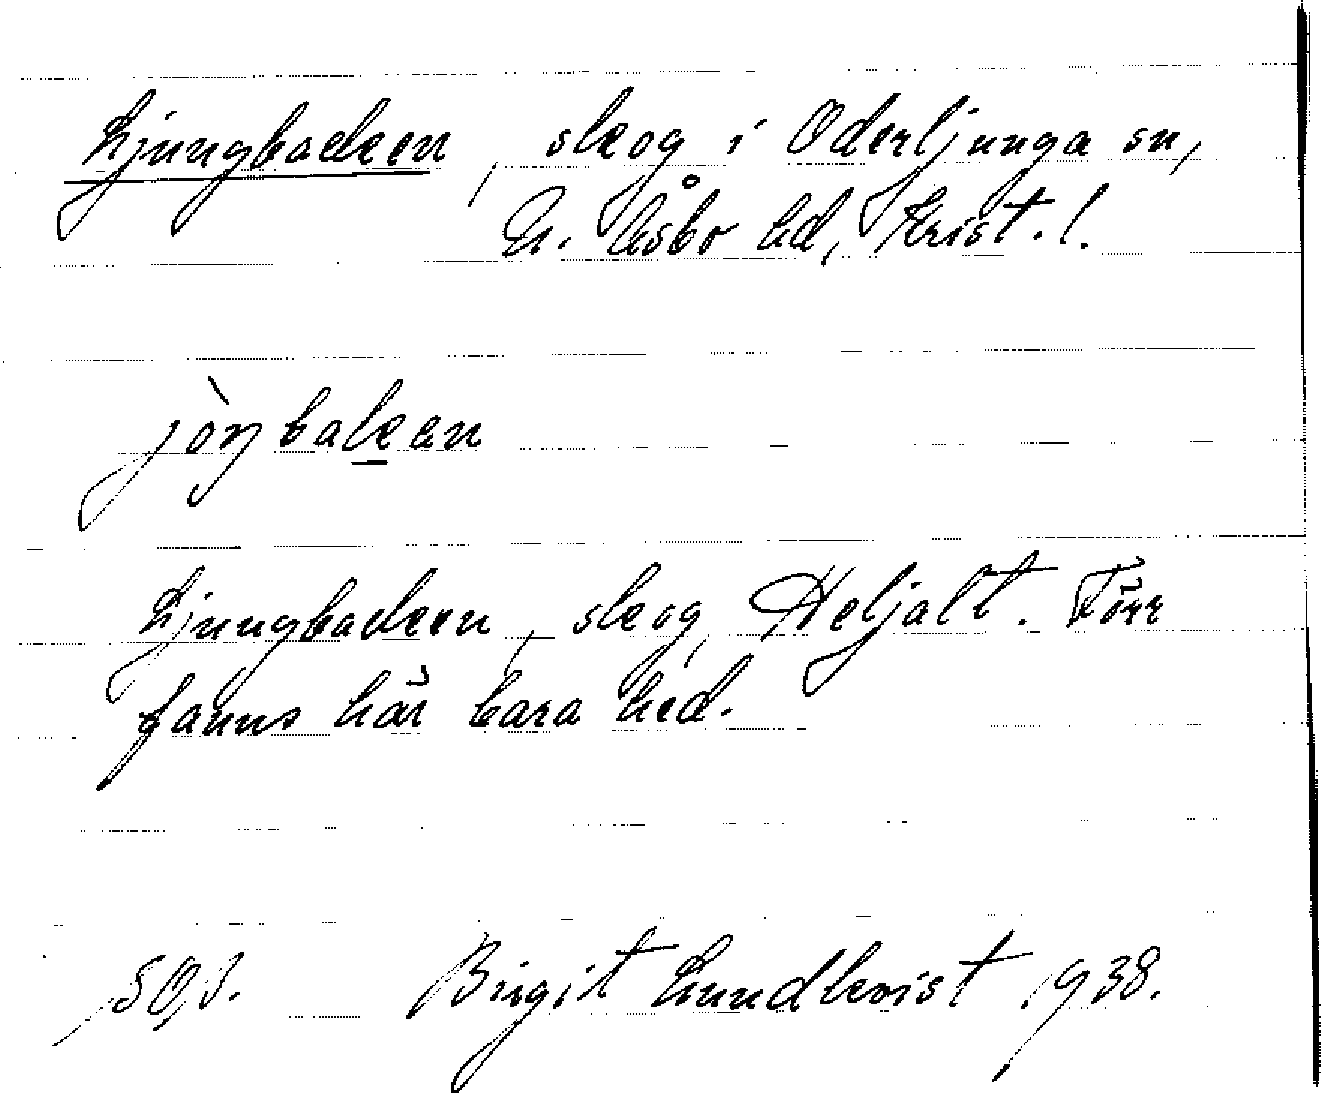 Ljungbacken, skog i Oderljunga sn,
N. Åsbo hd, Krist. l.
jòŋbakan
Ljungbacken, skog, Heljalt. Förr
fanns här bara hed.
SOI. Birgit Lundkvist 1938.